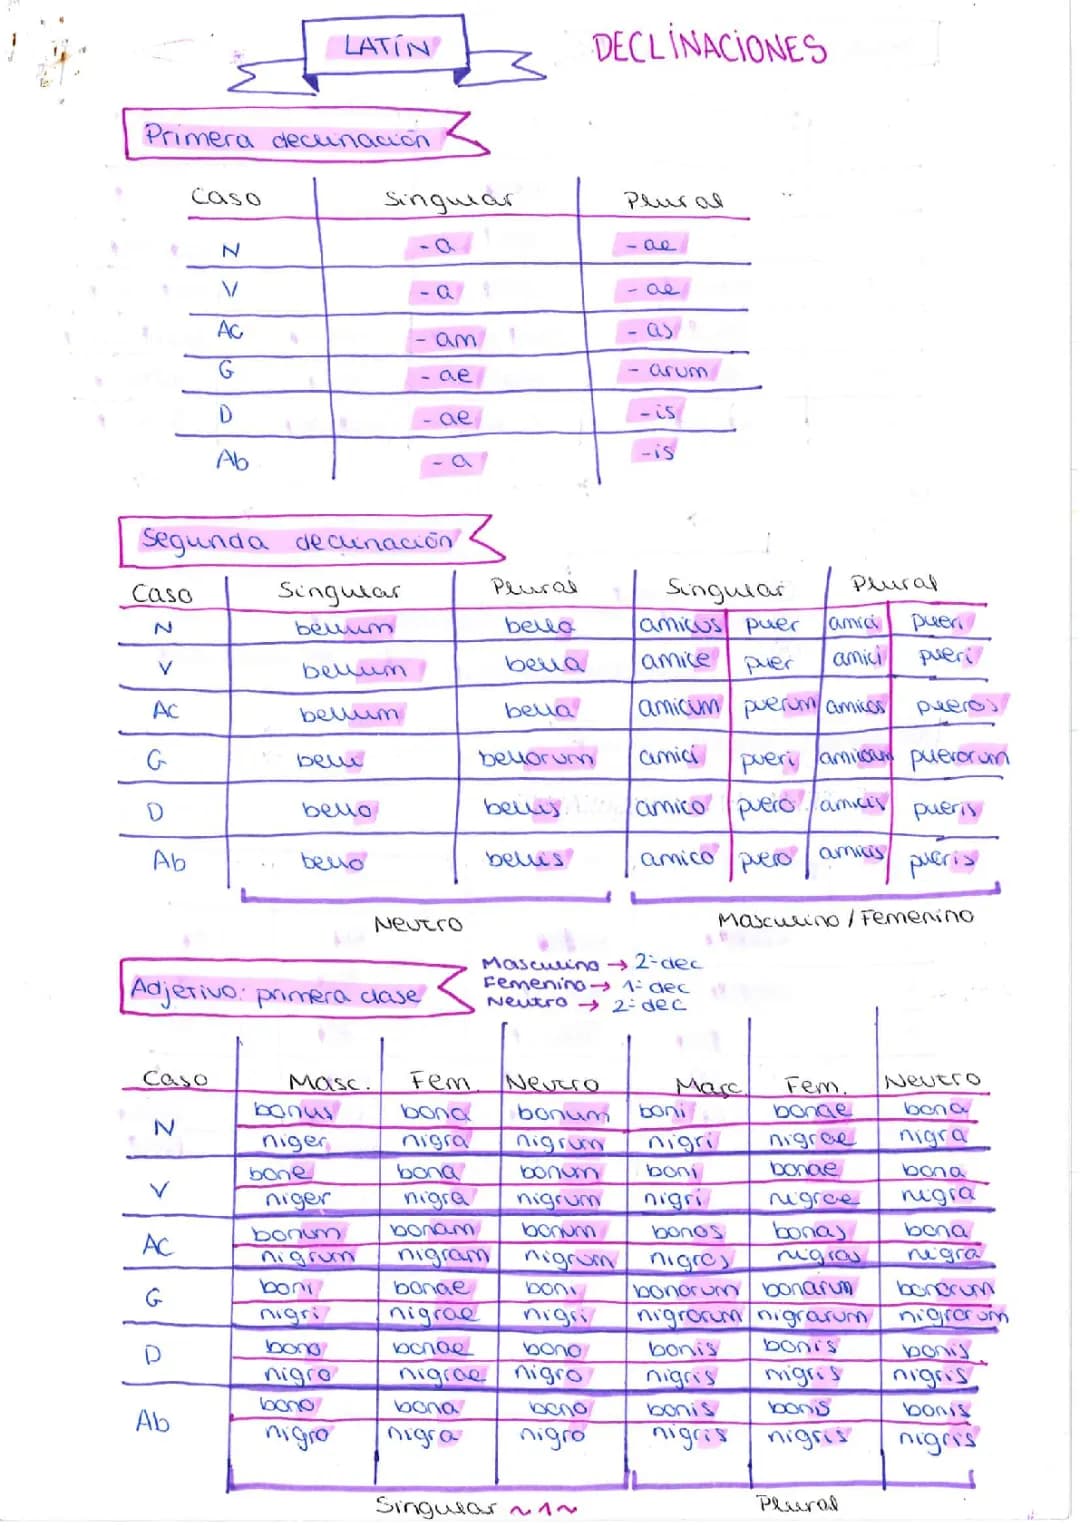 LATÍN
DECLINACIONES
Primera declinación
Caso Singular Plural
N -a -ae
V -a -ae
AC -am -as
G -ae -arum
D -ae -is
Ab -a -is
Segunda declinación
Caso Singular Plural Singular Plural
N bellum bella amicus puer amici pueri
V bellum bella amice puer amici pueri
AC bellum bella amicum puerum amicos pueros
G belli bellorum amici pueri puerorum
D bello bellis amico puero amicis pueris
Ab bello bellis amico puero amicis pueris
Neutro Masculino / Femenino
Masculino → 2ª dec
Adjetivo: primera clase Femenino → 1ª dec
Neutro → 2ª dec
Caso Masc. Fem. Neutro Masc. Fem. Neutro
N bonus bona bonum boni bonae bona
niger nigra nigrum nigri nigrae nigra
V bone bona bonum boni bonae bona
niger nigra nigrum nigri nigrae nigra
AC bonum bonam bonum bonos bonas bona
nigrum nigram nigrum nigros nigras nigra
G boni bonae boni bonorum bonarum bonorum
nigri nigrae nigri nigrorum nigrarum nigrorum
D bono bonae bono bonis bonis bonis
nigro nigrae nigro nigris nigris nigris
Ab bono bona bono bonis bonis bonis
nigro nigra nigro nigris nigris nigris
Singular ~1~ Plural